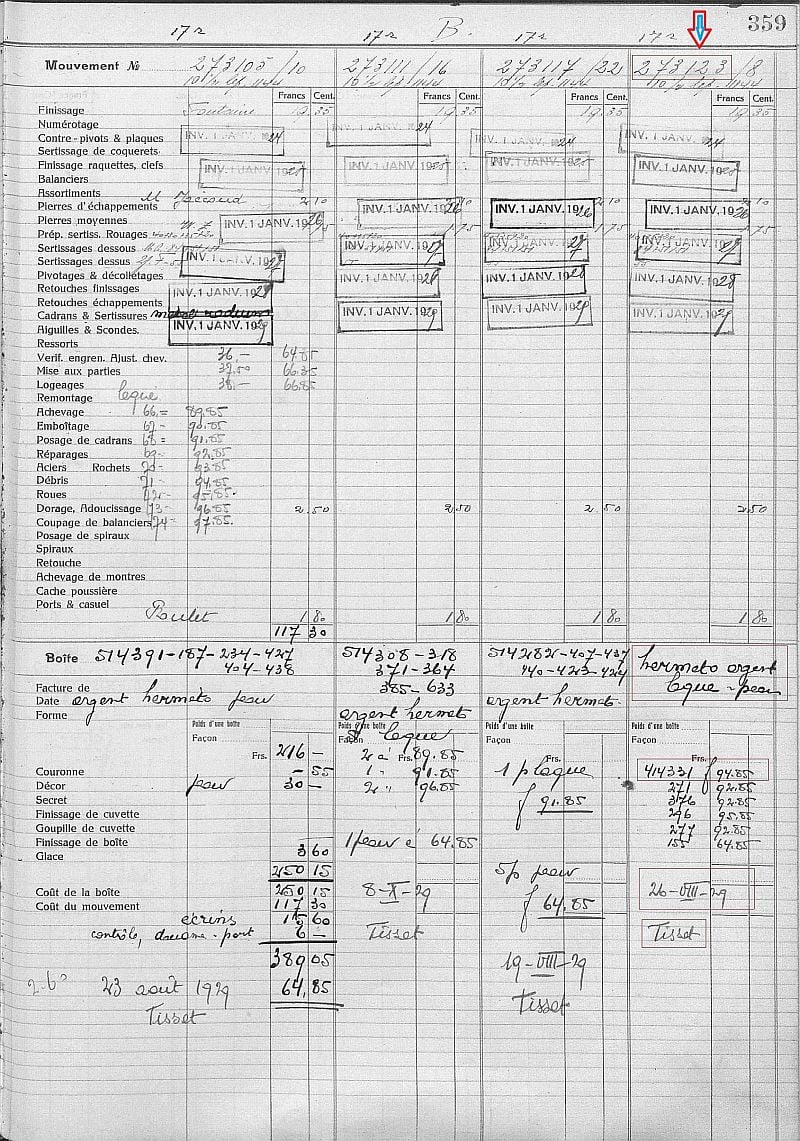 359
17 r 17 r B. 17 r 17 r
Mouvement № 273105/10 273111/16 273117/22 273123/8
Francs Cent. Francs Cent. Francs Cent. Francs Cent.
Finissage Fontaine 19.35 19.35 19.35 19.35
Numérotage
Contre-pivots & plaques INV. 1 JANV. 1924 INV. 1 JANV. 1924 INV. 1 JANV. 1924 INV. 1 JANV. 1924
Sertissage de coquerets
Finissage raquettes, clefs INV. 1 JANV. 1925 INV. 1 JANV. 1925 INV. 1 JANV. 1925 INV. 1 JANV. 1925
Balanciers
Assortiments
Pierres d'échappements M. Jaccoud 2.10 INV. 1 JANV. 1926 2.10 INV. 1 JANV. 1926 2.10 INV. 1 JANV. 1926
Pierres moyennes INV. 1 JANV. 1926
Prép. sertiss. Rouages 1.75 1.75 1.75
Sertissages dessous INV. 1 JANV. 1927 INV. 1 JANV. 1927 INV. 1 JANV. 1927
Sertissages dessus INV. 1 JANV. 1927
Pivotages & décolletages INV. 1 JANV. 1928 INV. 1 JANV. 1928 INV. 1 JANV. 1928
Retouches finissages INV. 1 JANV. 1928
Retouches échappements INV. 1 JANV. 1929 INV. 1 JANV. 1929 INV. 1 JANV. 1929
Cadrans & Sertissures radium
Aiguilles & Scondes. INV. 1 JANV. 1929
Ressorts
Verif. engren. Ajust. chev. 36,- 64.85
Mise aux parties 37,50 66.35
Logeages 38,- 66.85
Remontage leque
Achevage 66.= 89.85
Emboîtage 67- 90.85
Posage de cadrans 68= 91.85
Réparages 69- 92.85
Aciers Rochets 70- 93.85
Débris 71- 94.85
Roues 72- 95.85
Dorage, Adoucissage 73- 96.85 2.50 2.50 2.50 2.50
Coupage de balanciers 74= 97.85
Posage de spiraux
Spiraux
Retouche
Achevage de montres
Cache poussière
Ports & casuel Poulet 1 80 1 80 1 80 1 80
117 30
Boîte 514391-187-234-427 514308-318 514282-407-437 hermeto argent
404-438 371-364 440-423-424 leque-peau
Facture de 385-633
Date argent hermeto peau argent hermeto argent hermeto
Forme leque
Poids d'une boîte Poids d'une boîte Poids d'une boîte Poids d'une boîte
Façon Façon Façon Façon
Frs. 216 - 2 à 89.85 Frs. Frs.
Couronne - 55 1 " 91.85 1 plaque 414331 f 94.85
Décor peau 30 - 2 " 96.85 271 92.85
Secret f 91.85 376 92.85
Finissage de cuvette 296 95.85
Goupille de cuvette 277 92.85
Finissage de boîte 3 60 1 peau à 64.85 155 64.85
Glace
250 15 5 p peau
Coût de la boîte 250 15 8-X-29 26-VIII-29
Coût du mouvement 117 30 f 64,85
écrins 15 60
contrôle, douane-port 6 - Tisset Tisset
389 05 19-VIII-29
23 août 1929 64,85
Tisset Tisset